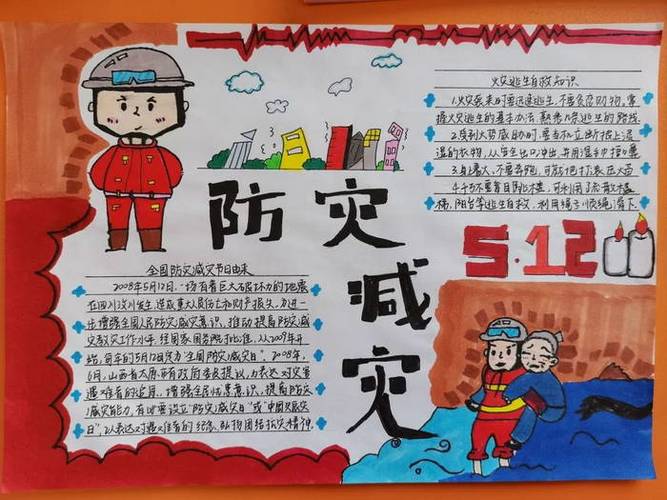 防灾
减灾
5.12
火灾逃生自救知识
1.火灾袭来时要迅速逃生,不要贪恋财物,掌
握火灾逃生的基本办法,熟悉几条逃生的路线
2.受到火势威胁时,要当机立断披上浸
湿的衣物,从安全出口冲出,并用湿毛巾捂口鼻
3.身上着火,不要奔跑,可就地打滚压火苗
4.千万不要盲目跳楼,可利用疏散楼
梯,阳台等逃生自救,利用绳子顺绳滑下
全国防灾减灾节日由来
2008年5月12日,一场有着巨大破坏力的地震
在四川汶川发生,造成重大人员伤亡和财产损失,为进一
步增强全国人民防灾减灾意识,推动提高防灾减
灾救灾工作水平,经国家国务院批准,从2009年开
始,每年的5月12日定为"全国防灾减灾日"。2008年,
6月,山西省太原市有政府委员提议,为表达对灾害
遇难者的追思,增强全民忧患意识,提高防灾
减灾能力,有必要设立"防灾减灾日"或"中国
日",以表达对遇难者的纪念,弘扬团结抗灾精神